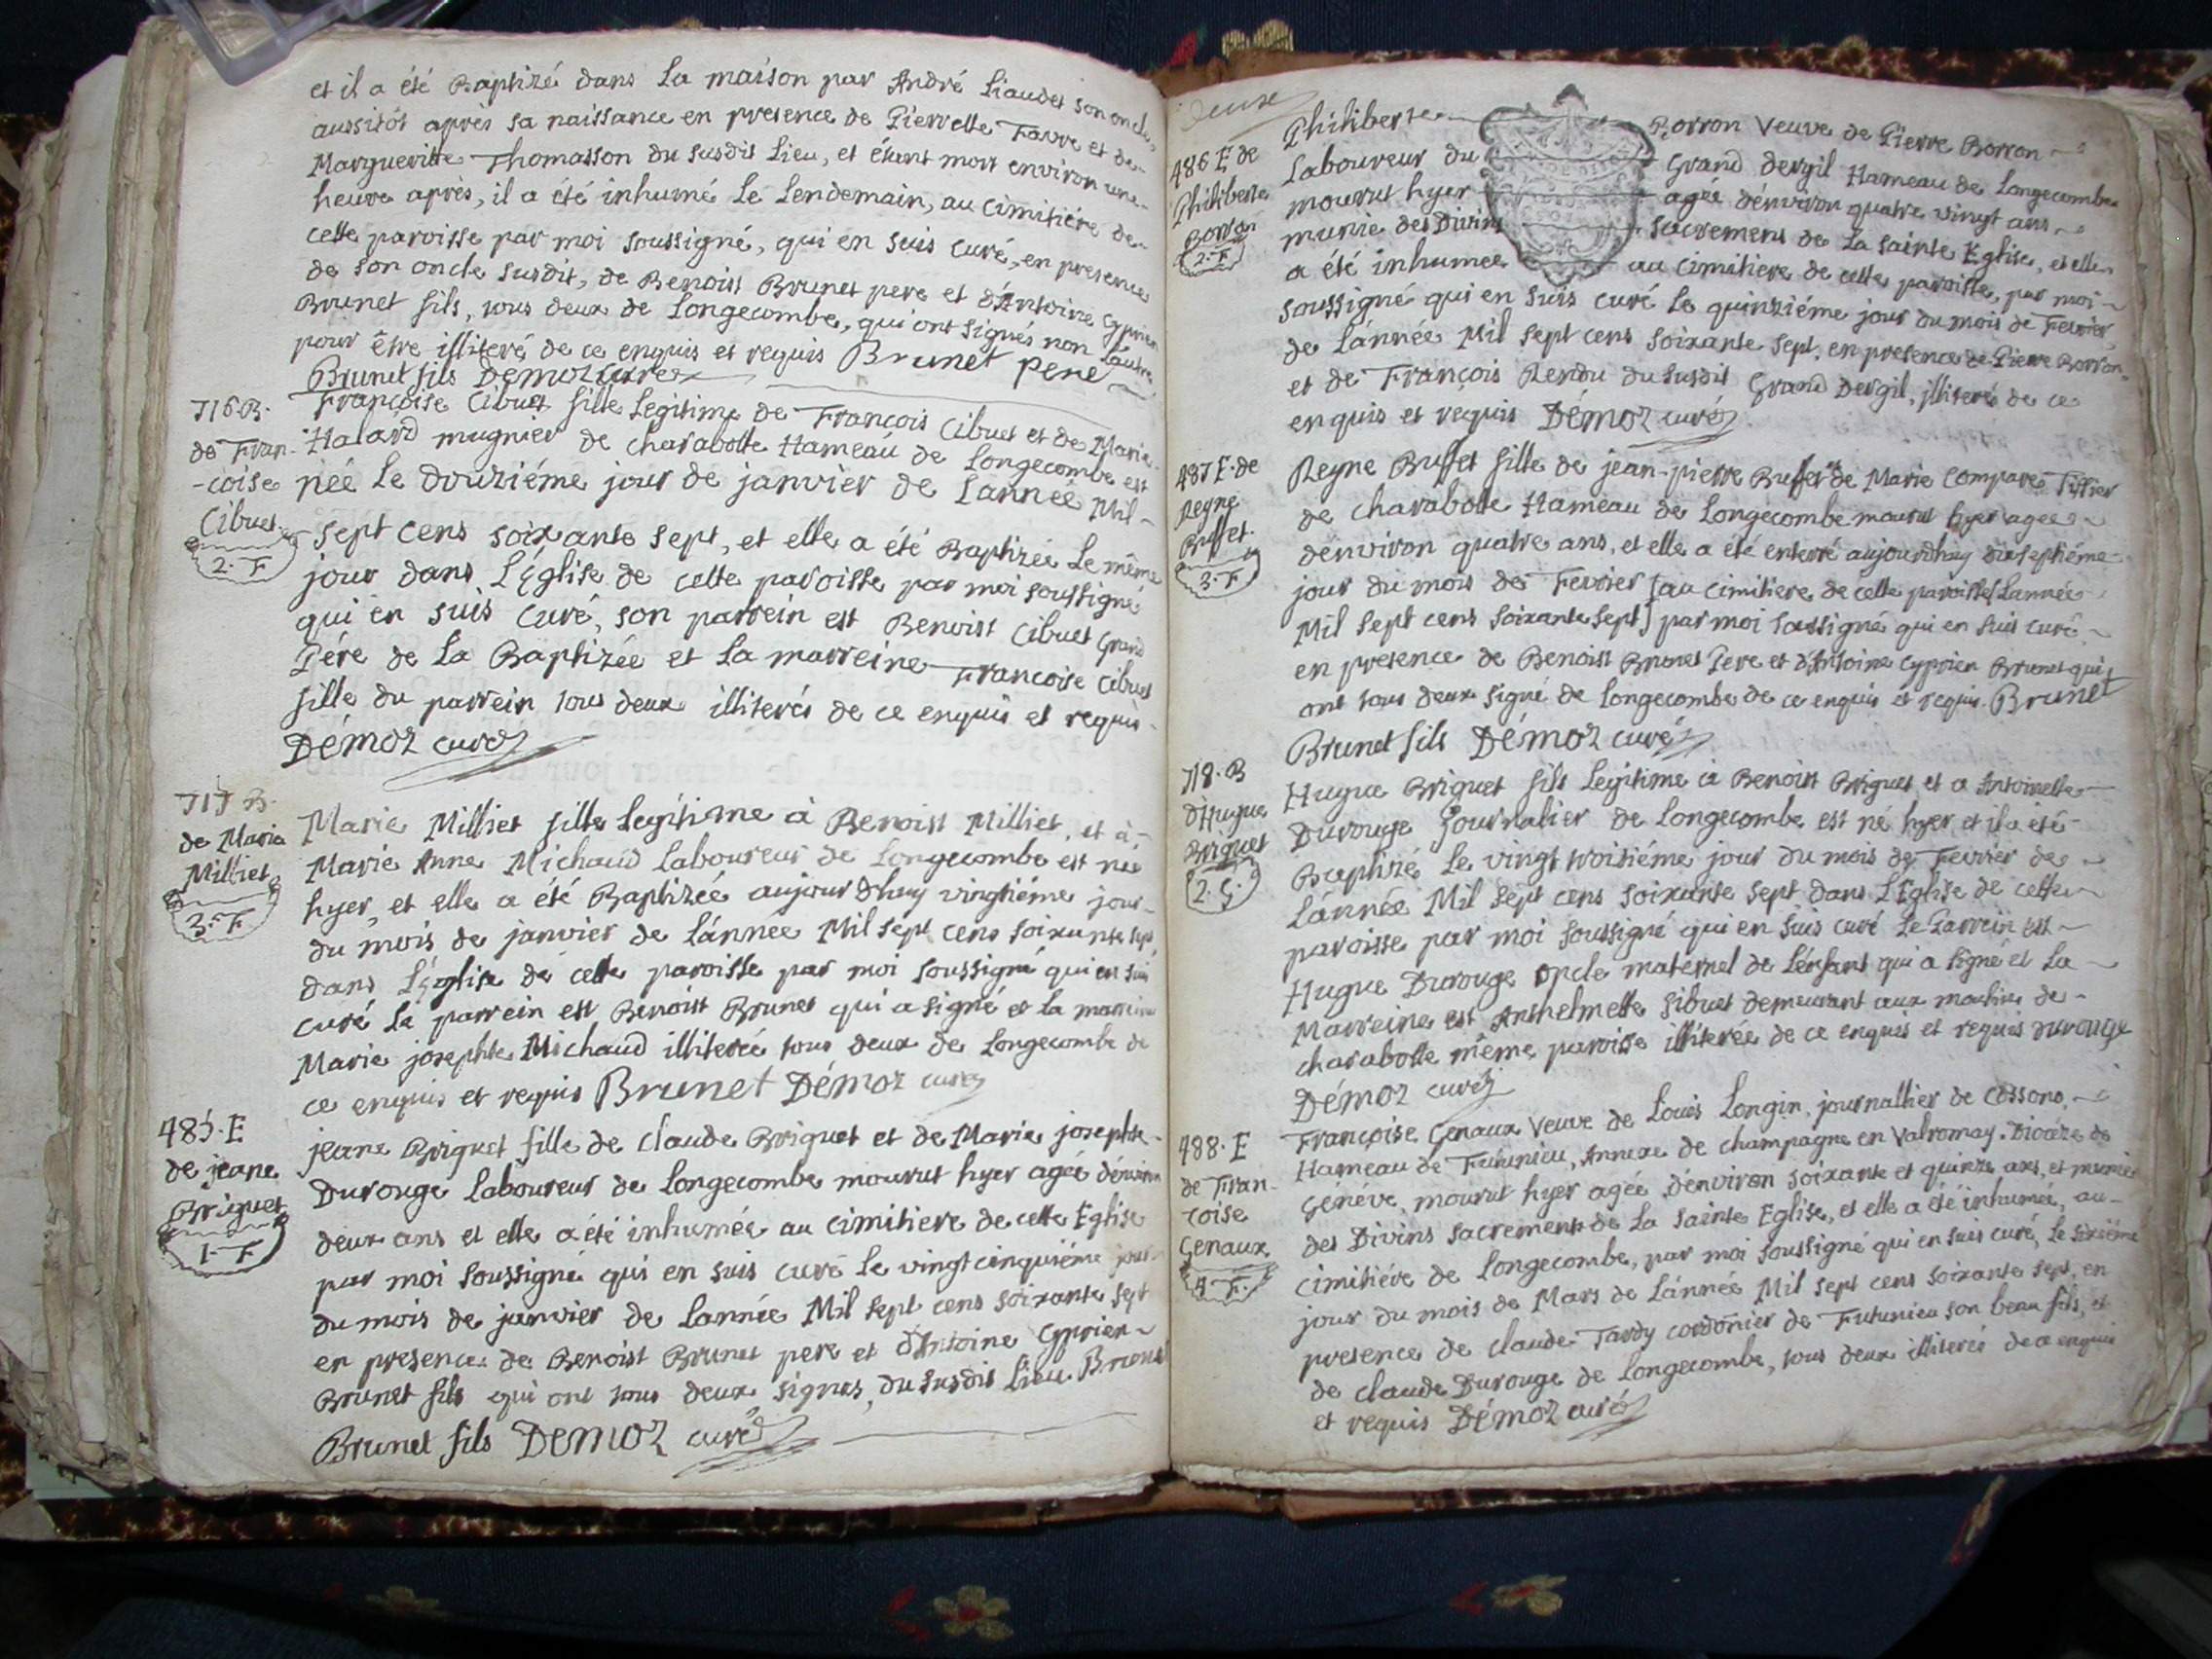 et il a été Baptizé dans La maison par André Liaudet son oncle,
aussitôt après sa naissance en presence de Pierrette Favre et de-
Margueritte Thomasson du susdit Lieu, et étant mort environ une-
heure après, il a été inhumé Le Lendemain, au Cimitiére de-
cette paroisse par moi soussigné, qui en suis curé, en presence
de son oncle susdit, de Benoist Brunet pere et d'Antoine Cyprien
Brunet fils, tous deux de Longecombe, qui ont signés non L'autre
pour être illiteré de ce enquis et requis Brunet pere
Brunet fils Démoz curé
716.B.
de Fran-
-çoise
Cibuet
2. F
Françoise Cibuet fille Legitime de François Cibuet et de Marie
Halard mugnier de charabotte Hameau de Longecombe est
née Le douziéme jour de janvier de L'année Mil-
sept cens soixante sept, et elle a été Baptizée Le même
jour dans L'Église de cette paroisse par moi soussigné
qui en suis curé, son parrein est Benoist Cibuet Grand
Pére de La Baptizée et La marreine Francoise Cibuet
fille du parrein tous deux illiterés de ce enquis et requis.
Démoz curé
717 B.
de Marie
Milliet
3. F
Marie Milliet fille Legitime à Benoist Milliet, et à-
Marie Anne Michaud Laboureur de Longecombe est née
hyer, et elle a été Baptizée aujourdhuy vingtiéme jour-
du mois de janvier de L'année Mil sept cens soixante sept
dans L'Église de cette paroisse par moi soussigné qui en suis
curé Le parrein est Benoist Brunet qui a signé et la marreine
Marie josephte Michaud illiterée tous deux de Longecombe de
ce enquis et requis Brunet Démoz curé
485. E
de jeane
Briguet
1. F
jeane Briguet fille de claude Briguet et de Marie josephte-
Durouge Laboureur de Longecombe mourut hyer agée d'environ
deux ans et elle a été inhumée au cimitiere de cette Eglise
par moi soussigné qui en suis curé le vingt cinquiéme jour
du mois de janvier de L'année Mil sept cens soixante sept
en presence de Benoist Brunet pere et d'Antoine Cyprien
Brunet fils qui ont tous deux signés, du susdit Lieu Brunet
Brunet fils Démoz curé
486 E de
Philiberte
Borron
2. F
Philiberte Borron Veuve de Pierre Borron
Laboureur du Grand dergil Hameau de Longecombe
mourut hyer agée d'environ quatre vingt ans,
munie des Divins Sacremens de La Sainte Eglise, et elle
a été inhumee au cimitiere de cette paroisse, par moi
soussigné qui en suis curé Le quinziéme jour du mois de Fevrier,
de L'année Mil sept cens soixante sept, en presence de Pierre Borron
et de François Rendu du susdit Grand Dergil, illiterés de ce
enquis et requis Démoz curé
487 E. de
Reyne
Buffet.
3. F
Reyne Buffet fille de jean-pierre Buffet et de Marie Compare Tissier
de charabotte Hameau de Longecombe mourut hyer agee
d'environ quatre ans, et elle a été enterré aujourdhuy dixseptiéme
jour du mois de Fevrier [au Cimitiere de cette paroisse] L'année
Mil sept cens soixante sept] par moi soussigné qui en suis curé
en presence de Benoist Brunet Pere et d'Antoine Cyprien Brunet qui
ont tous deux signé de Longecombe de ce enquis et requis. Brunet
Brunet fils Démoz curé
718. B
d'Hugue
Briguet
2. G.
Hugue Briguet fils Legitime à Benoist Briguet et a Antoinette
Durouge Journalier de Longecombe est né hyer et il a été
Baptizé Le vingt troisiéme jour du mois de Fevrier de
L'année Mil sept cens soixante sept dans L'Eglise de cette
paroisse par moi soussigné qui en suis curé Le Parrein est
Hugue Durouge oncle maternel de L'enfant qui a signé et La
Marreine est Anthelmette Sibuet demeurant aux moulins de
charabotte même paroisse illiterée de ce enquis et requis durouge
Démoz curé
488. E
de Fran-
coise
Genaux
4 F.
Françoise Genaux Veuve de Louis Longin, journallier de Cossono,
Hameau de Fitinieu, Annexe de champagne en Valromay. Diocèze de
Généve, mourut hyer agée d'environ soixante et quinze ans, et munie
des Divins Sacrements de La Sainte Eglise, et elle a été inhumée, au-
cimitiére de Longecombe, par moi soussigné qui en suis curé, Le sixiéme
jour du mois de Mars de L'année Mil sept cens soixante sept, en
presence de claude Tardy cordonier de Fitinieu son beau fils, et
de claude Durouge de Longecombe, tous deux illiterés de ce enquis
et requis Démoz curé